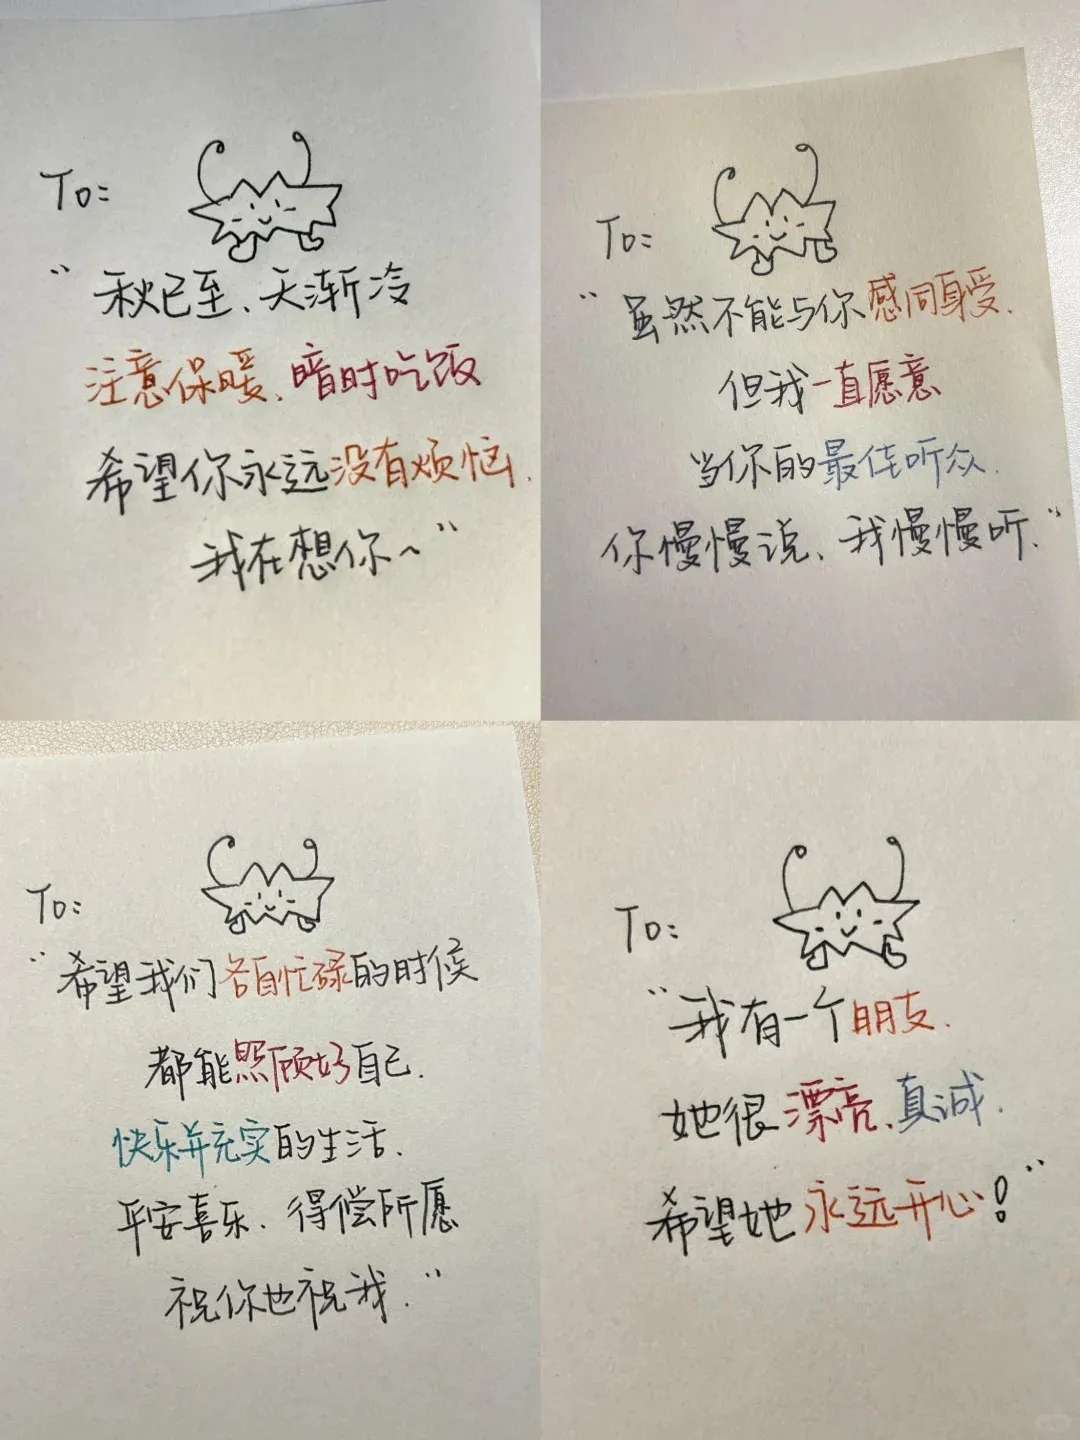 To:
“秋已至、天渐冷
注意保暖、暗时吃饭
希望你永远没有烦恼.
我在想你~”
To:
“虽然不能与你感同身受.
但我一直愿意
当你的最佳听众.
你慢慢说、我慢慢听.”
To:
“希望我们各自忙碌的时候
都能照顾好自己.
快乐并充实的生活.
平安喜乐、得偿所愿
祝你也祝我.”
To:
“我有一个朋友.
她很漂亮、真诚.
希望她永远开心!”